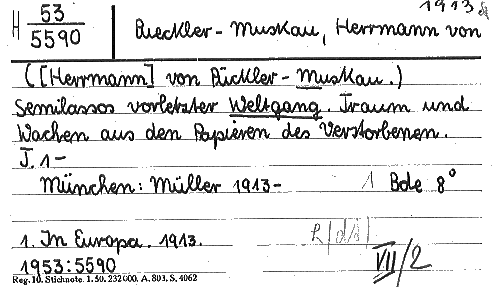 1913
H 53/5590 Pueckler-Muskau, Herrmann von
([Herrmann] von Pückler-Muskau.)
Semilassos vorletzter Weltgang. Traum und
Wachen aus den Papieren des Verstorbenen.
T. 1-
München: Müller 1913- 1 Bde 8°
1. In Europa. 1913.
VII/2
1953:5590
Reg. 10. Stichnote. 1. 50. 232000. A. 803. S. 4062